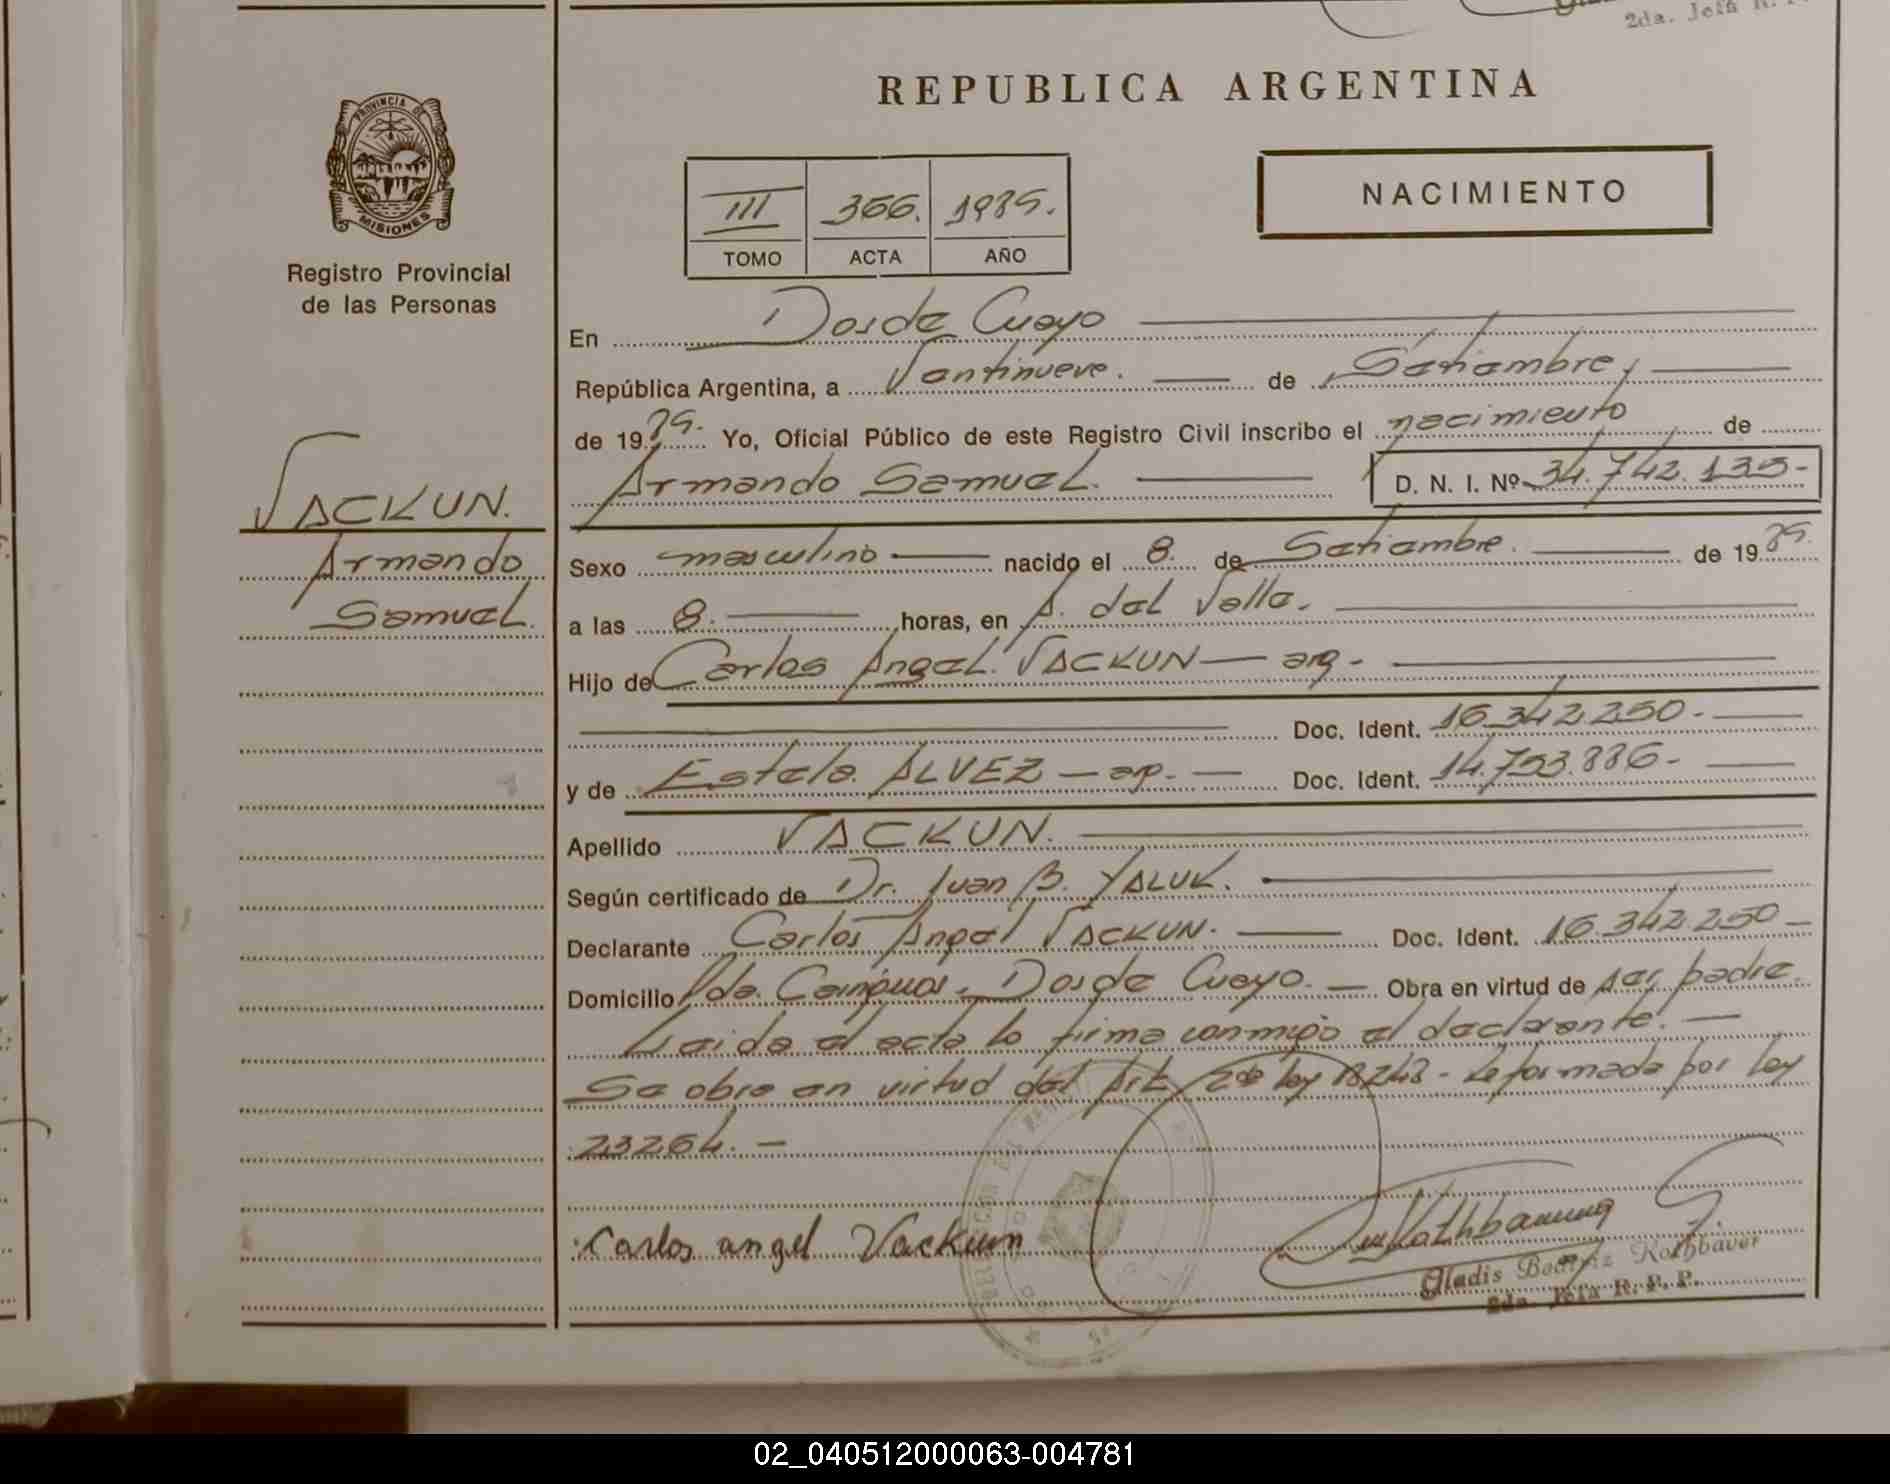 2da. Jefa R. P.
REPUBLICA ARGENTINA
PROVINCIA DE
MISIONES
Registro Provincial
de las Personas
III 366. 1989.
TOMO ACTA AÑO
NACIMIENTO
En Dos de Mayo
República Argentina, a Veintinueve. de Setiembre,
de 1989. Yo, Oficial Público de este Registro Civil inscribo el nacimiento de
Armando Samuel. D. N. I. Nº 34.742.135-
VACKUN.
Armando
Samuel.
Sexo masculino nacido el 8. de Setiembre. de 1989.
a las 8. horas, en A. del Valle.
Hijo de Carlos Angel. VACKUN - arg-
Doc. Ident. 16.342.250-
y de Estela ALVEZ - arg- Doc. Ident. 14.753.886-
Apellido VACKUN.
Según certificado de Dr. Juan B. YALUK.
Declarante Carlos Angel VACKUN. Doc. Ident. 16.342.250-
Domicilio Pda. Cainguas. Dos de Mayo. Obra en virtud de ser padre.
Leida el acta la firma conmigo el declarante. -
Se obra en virtud del Art 2 de ley 18248 - Reformada por ley
23264. -
Carlos angel Vackun
Gladis Beatriz Rothbauer
2da. Jefa R. P. P.
02_040512000063-004781